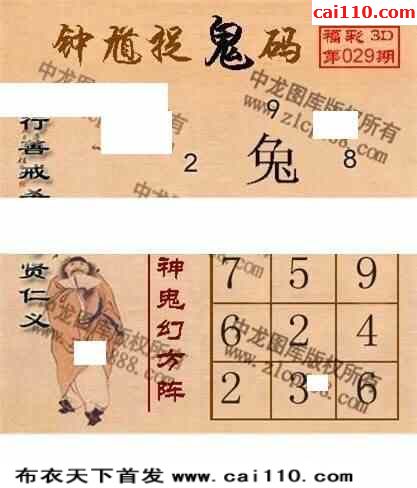 cai110.com
钟馗捉鬼码
福彩3D
第029期
9
2
兔
8
行善戒
贤仁义
神鬼幻方阵
7 5 9
6 2 4
2 3 6
中龙图库版权所有
布衣天下首发 www.cai110.com